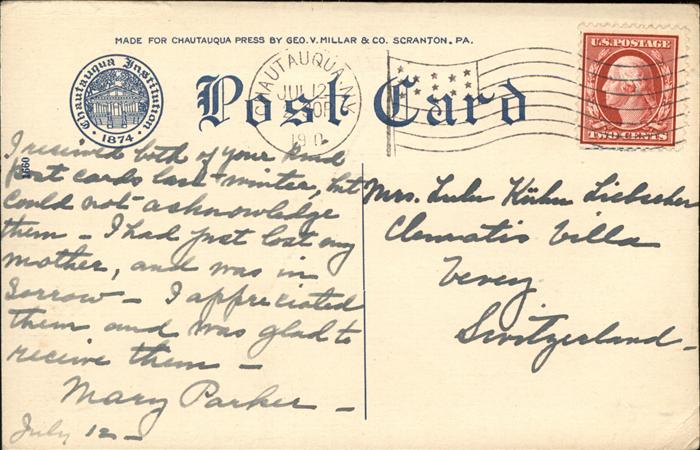 MADE FOR CHAUTAUQUA PRESS BY GEO. V. MILLAR & CO. SCRANTON, PA.
Chautauqua Institution
· 1874 ·
Post Card
CHAUTAUQUA, N.Y.
JUL 12
U.S. POSTAGE
TWO CENTS
1660
I received both of your kind
post cards last winter, but
could not acknowledge
them – I had just lost my
mother, and was in
sorrow – I appreciated
them and was glad to
receive them –
Mary Parker –
July 12 –
Mrs. Lulu Kühn Liebscher
Clematis Villa
Vevey
Switzerland –